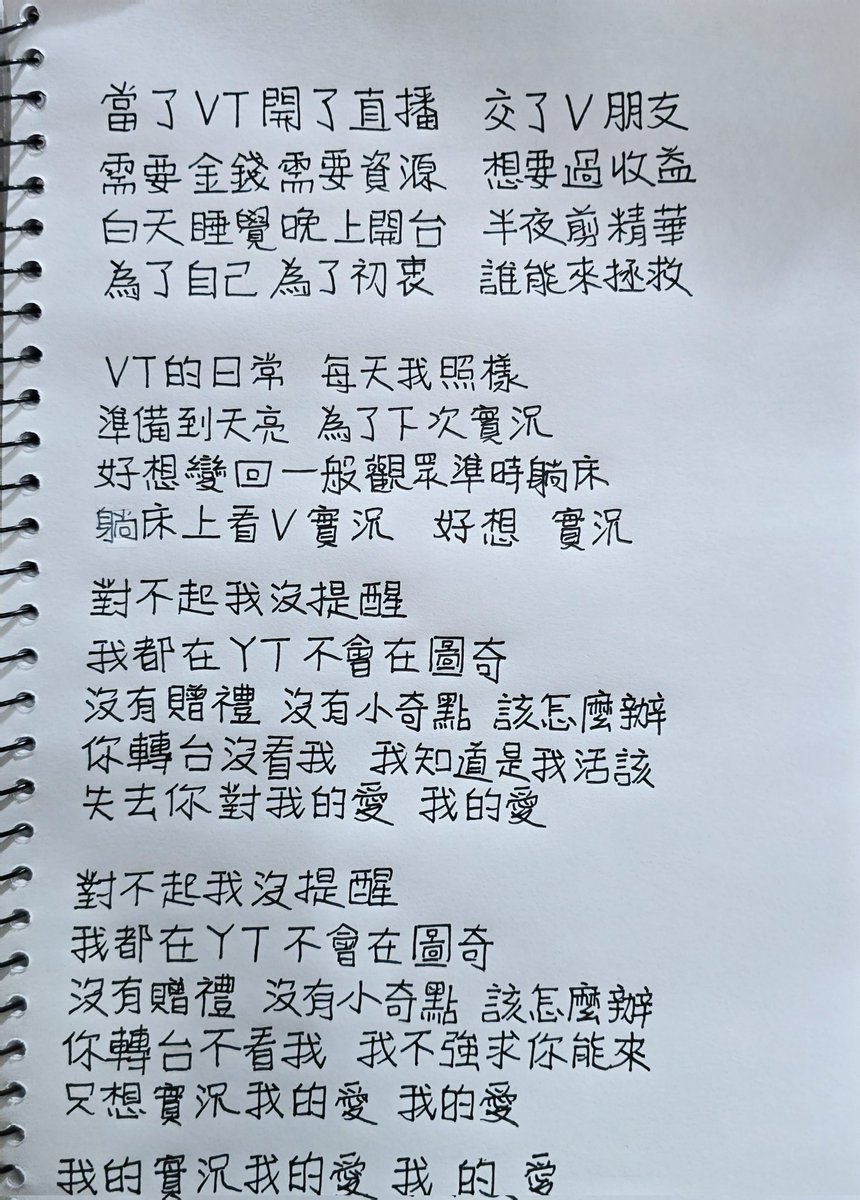 當了VT開了直播 交了V朋友
需要金錢需要資源 想要過收益
白天睡覺晚上開台 半夜剪精華
為了自己為了初衷 誰能來拯救
VT的日常 每天我照樣
準備到天亮 為了下次實況
好想變回一般觀眾準時躺床
躺床上看V實況 好想 實況
對不起我沒提醒
我都在YT不會在圖奇
沒有贈禮 沒有小奇點 該怎麼辦
你轉台沒看我 我知道是我活該
失去你對我的愛 我的愛
對不起我沒提醒
我都在YT不會在圖奇
沒有贈禮 沒有小奇點 該怎麼辦
你轉台不看我 我不強求你能來
只想實況我的愛 我的愛
我的實況我的愛 我 的 愛